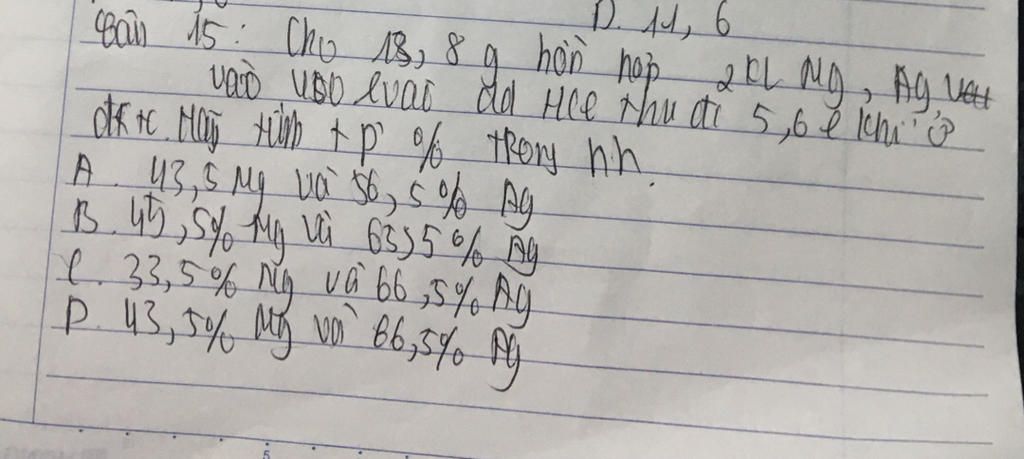 D. 11, 6
Bài 15: Cho 13,8 g hỗn hợp 2 KL Mg, Ag
vào vào dd HCl thu đc 5,6 l khí ở
đktc. Hãy tính tp % trong h.h.
A. 43,5 Mg và 56,5% Ag
B. 45,5% Mg và 63,5% Ag
C. 33,5% Mg và 66,5% Ag
D. 43,5% Mg và 66,5% Ag
5